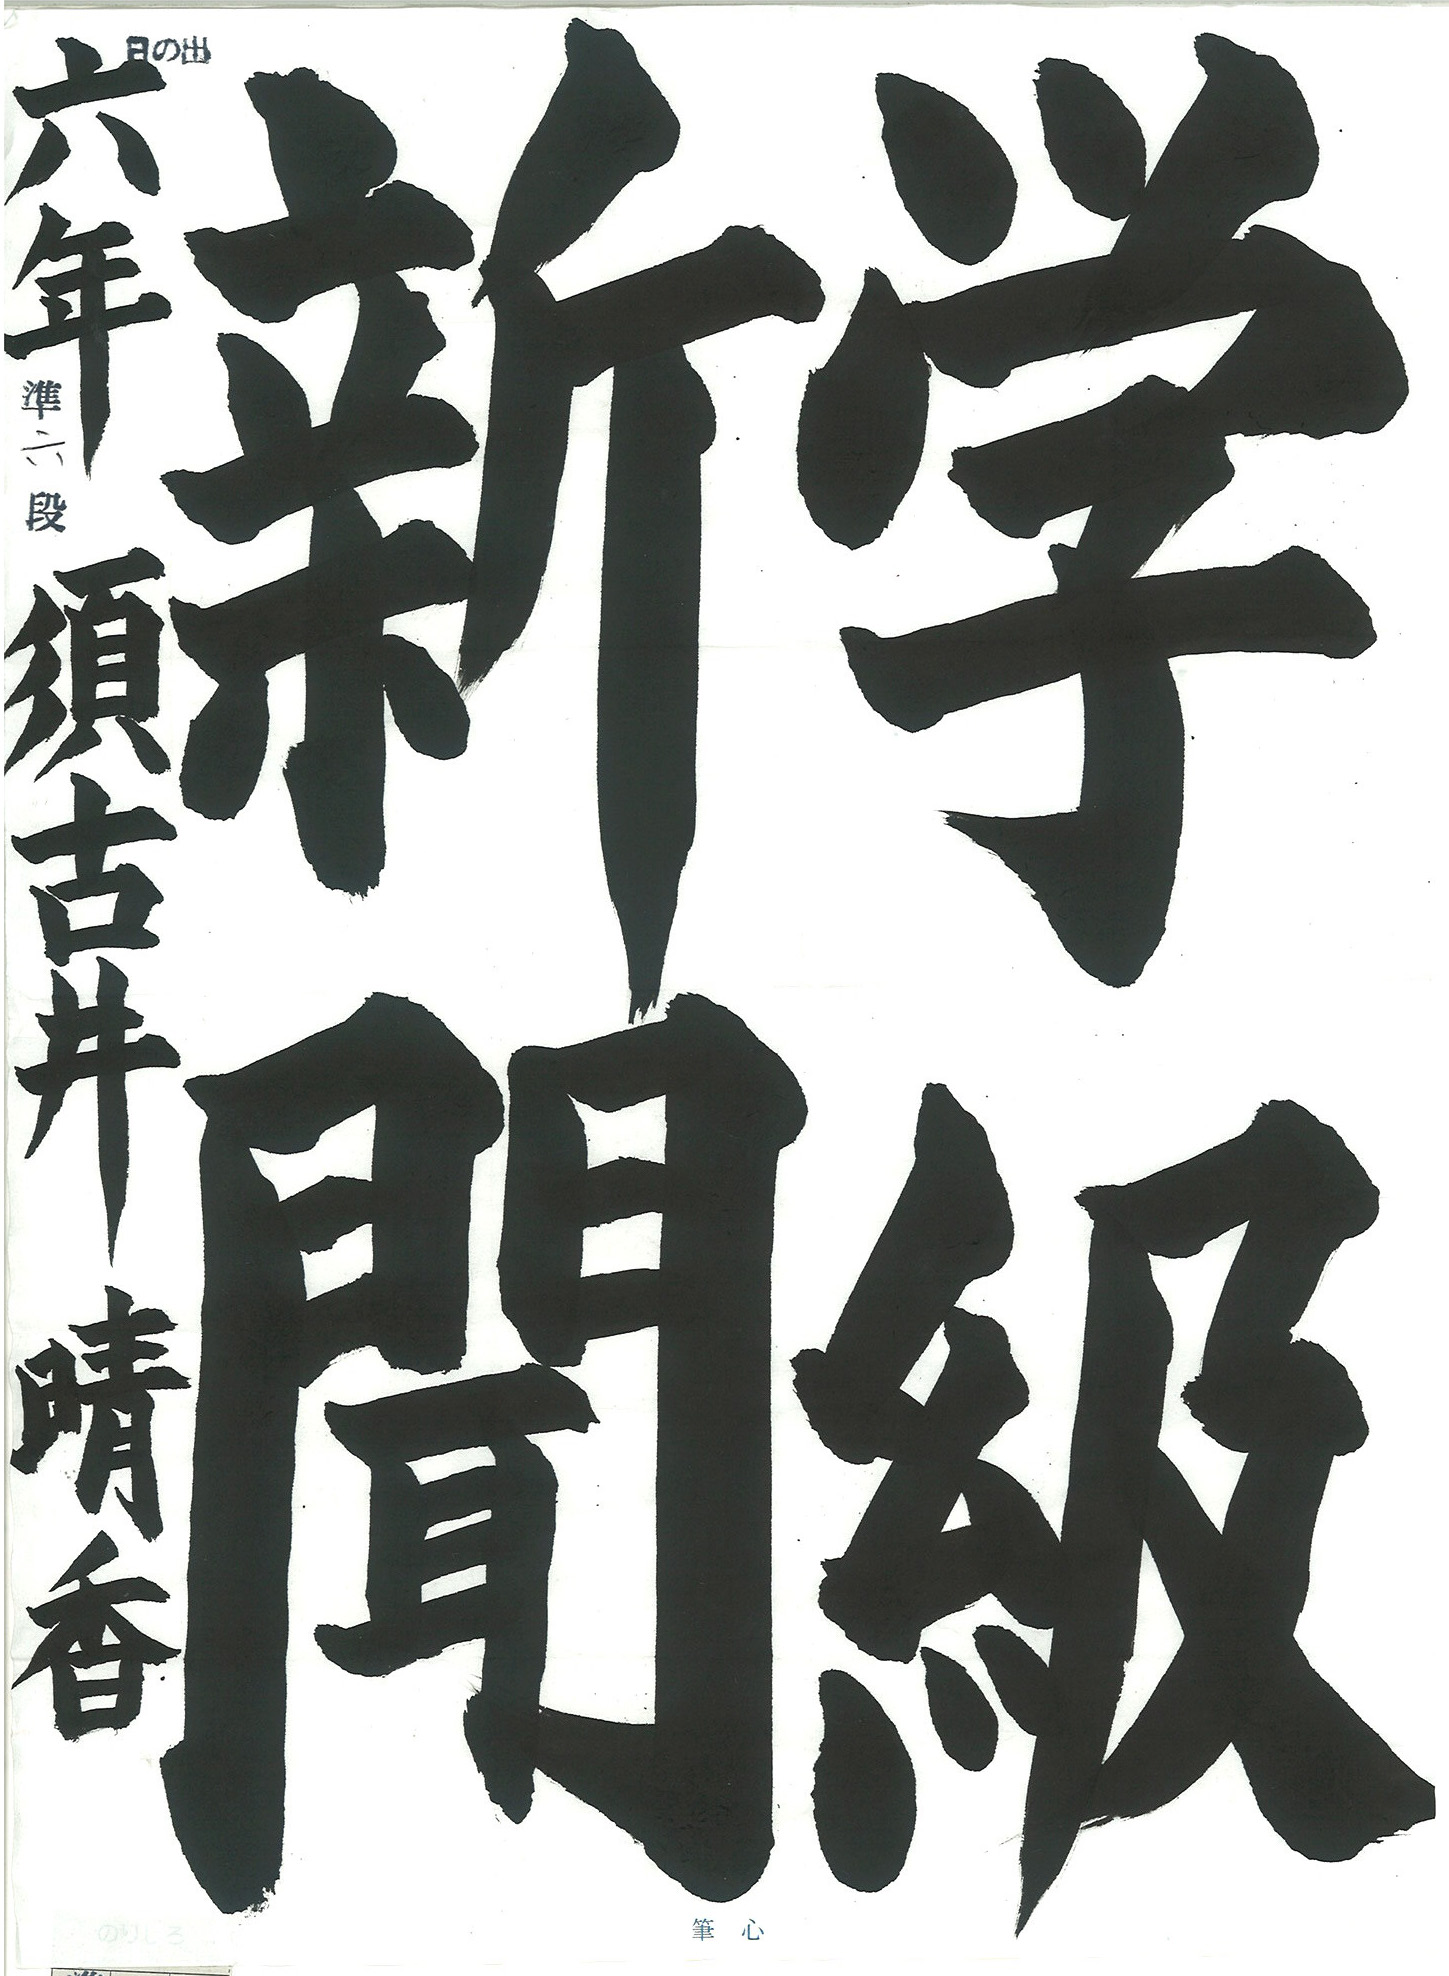 学級
新聞
日の出
六年 準六段 須古井 晴香
心筆
のりしろ